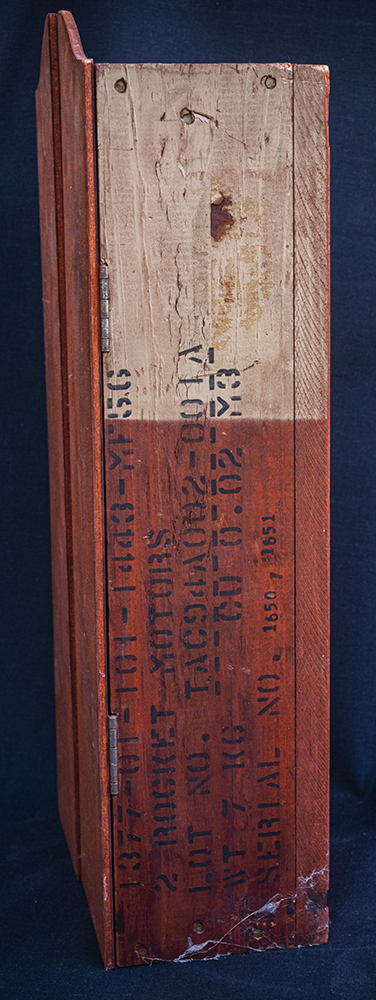 1377-01-101-1443-MF56
2 ROCKET MOTORS
LOT NO. TAC94A002-001A
WT 7 KG CU 0.02 M3
SERIAL NO. 1650 7 1651